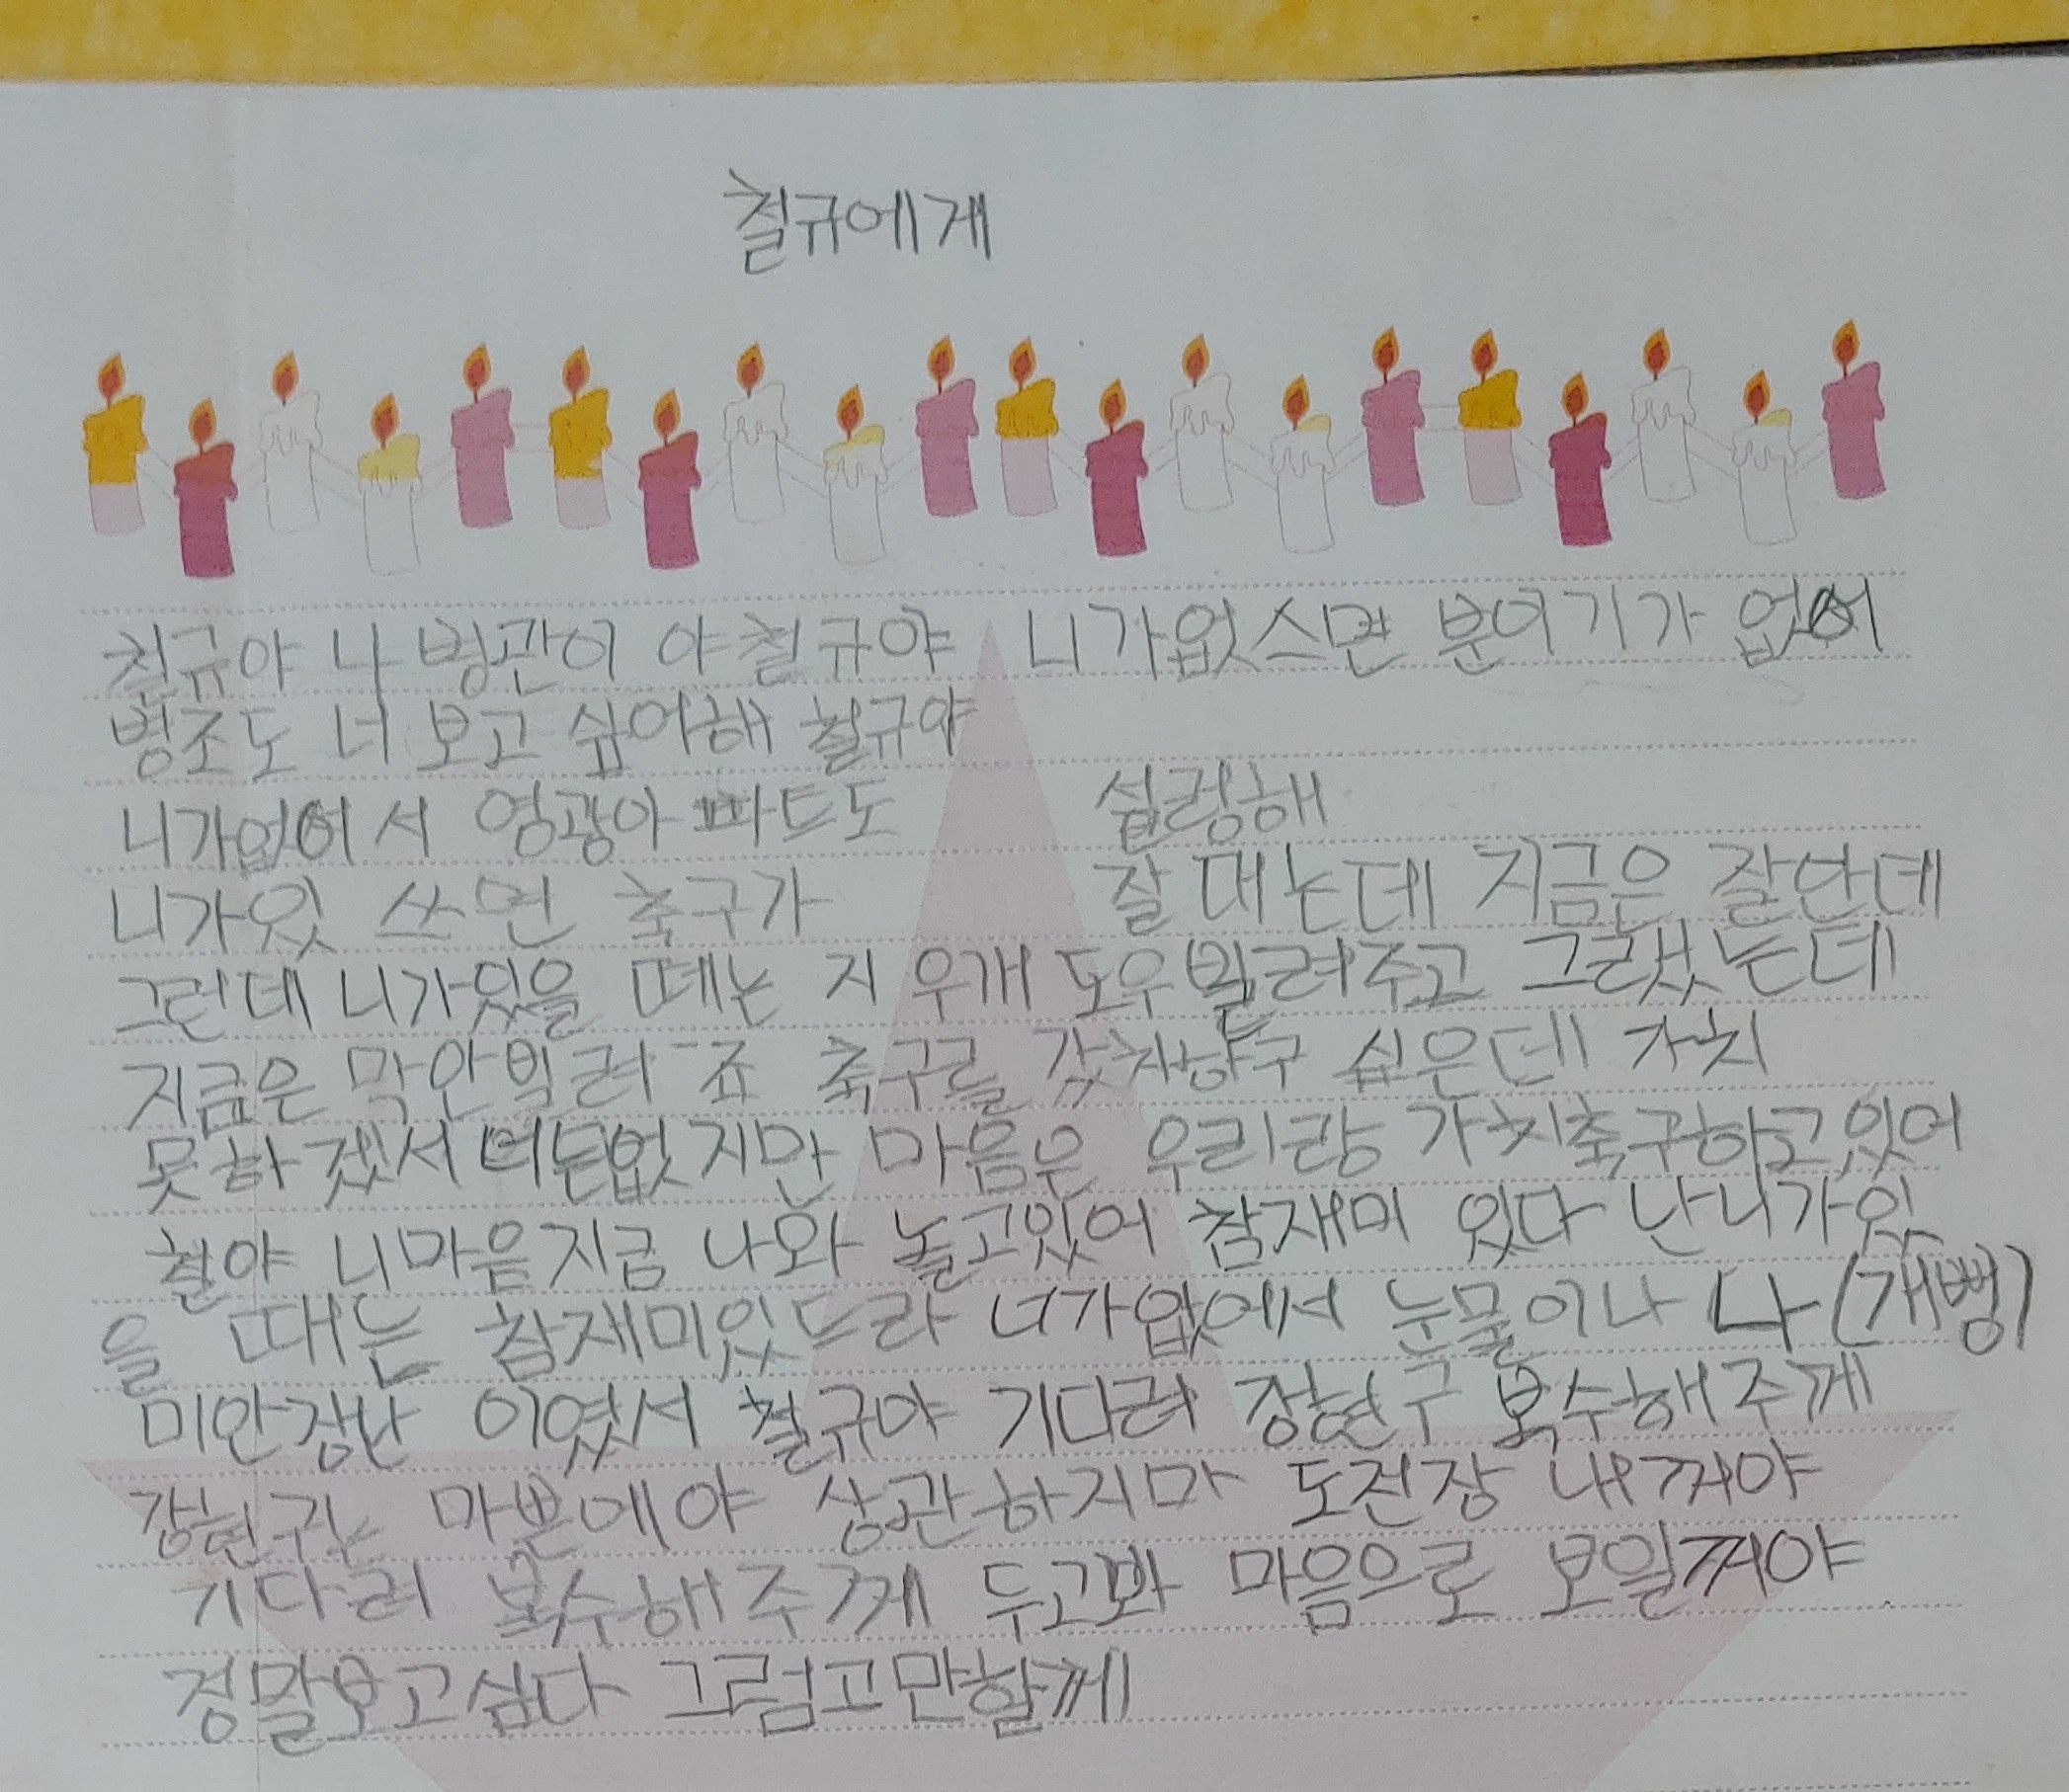 철규에게
철규야 나 병관이 야 철규야 니가없스면 분이기가 없어
병조도 너 보고 싶어해 철규야
니가없어서 영광아파트도 썰렁해
니가있 쓰면 축구가 잘 대는데 지금은 잘안데
그런데 니가있을 떼는 지우개 도우 빌려주고 그랬는데
지금은 막안빌려 죠 축구를 갗치하구 싶은데 가치
못하겠서 너는없지만 마음은 우리랑 가치축구하고있어
철야 니마음지금 나와 놀고있어 참재미 있다 난니가있
을 때는 참재미있드라 너가없에서 눈물이나 나 (개뻥)
미안장난 이였서 철규야 기다려 장현구 복수해주께
장현구는 마쁜에야 상관하지마 도전장 내꺼야
기다려 복수해주께 두고봐 마음으로 보일꺼야
정말보고심다 그럼고만할께